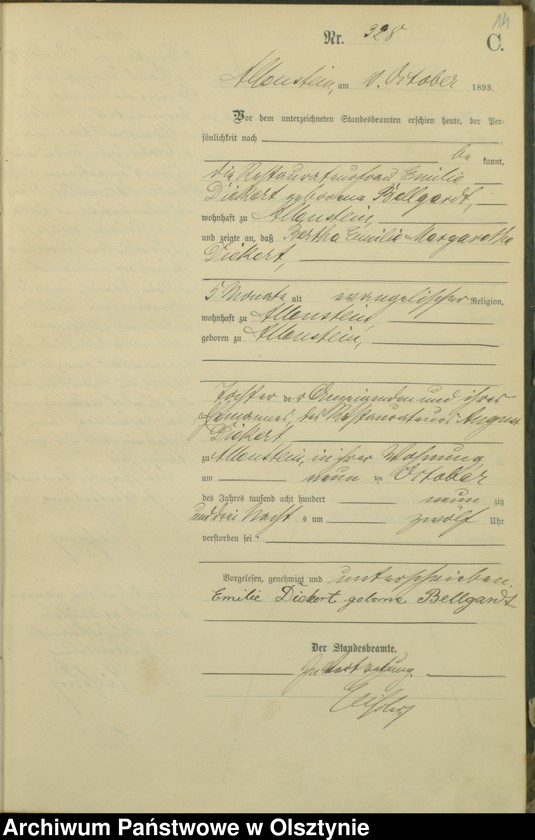 Nr. 328
C.
Allenstein, am October 1893.
Vor dem unterzeichneten Standesbeamten erschien heute, der Per-
sönlichkeit nach
be kannt,
die Restaurateurfrau Emilie
Dickert geborene Bellgardt,
wohnhaft zu Allenstein,
und zeigte an, daß Bertha Emilie Margarethe
Dickert,
5 Monate alt evangelischer Religion,
wohnhaft zu Allenstein
geboren zu Allenstein,
Tochter der Anzeigenden und ihres
Ehemannes, des Restaurateurs August
Dickert
zu Allenstein, in ihrer Wohnung
am neun ten October
des Jahres tausend acht hundert neun zig
und drei Nacht s um zwölf Uhr
verstorben sei
Vorgelesen, genehmigt und unterschrieben.
Emilie Dickert geborne Bellgardt
Der Standesbeamte.
In Vertretung.
Archiwum Państwowe w Olsztynie